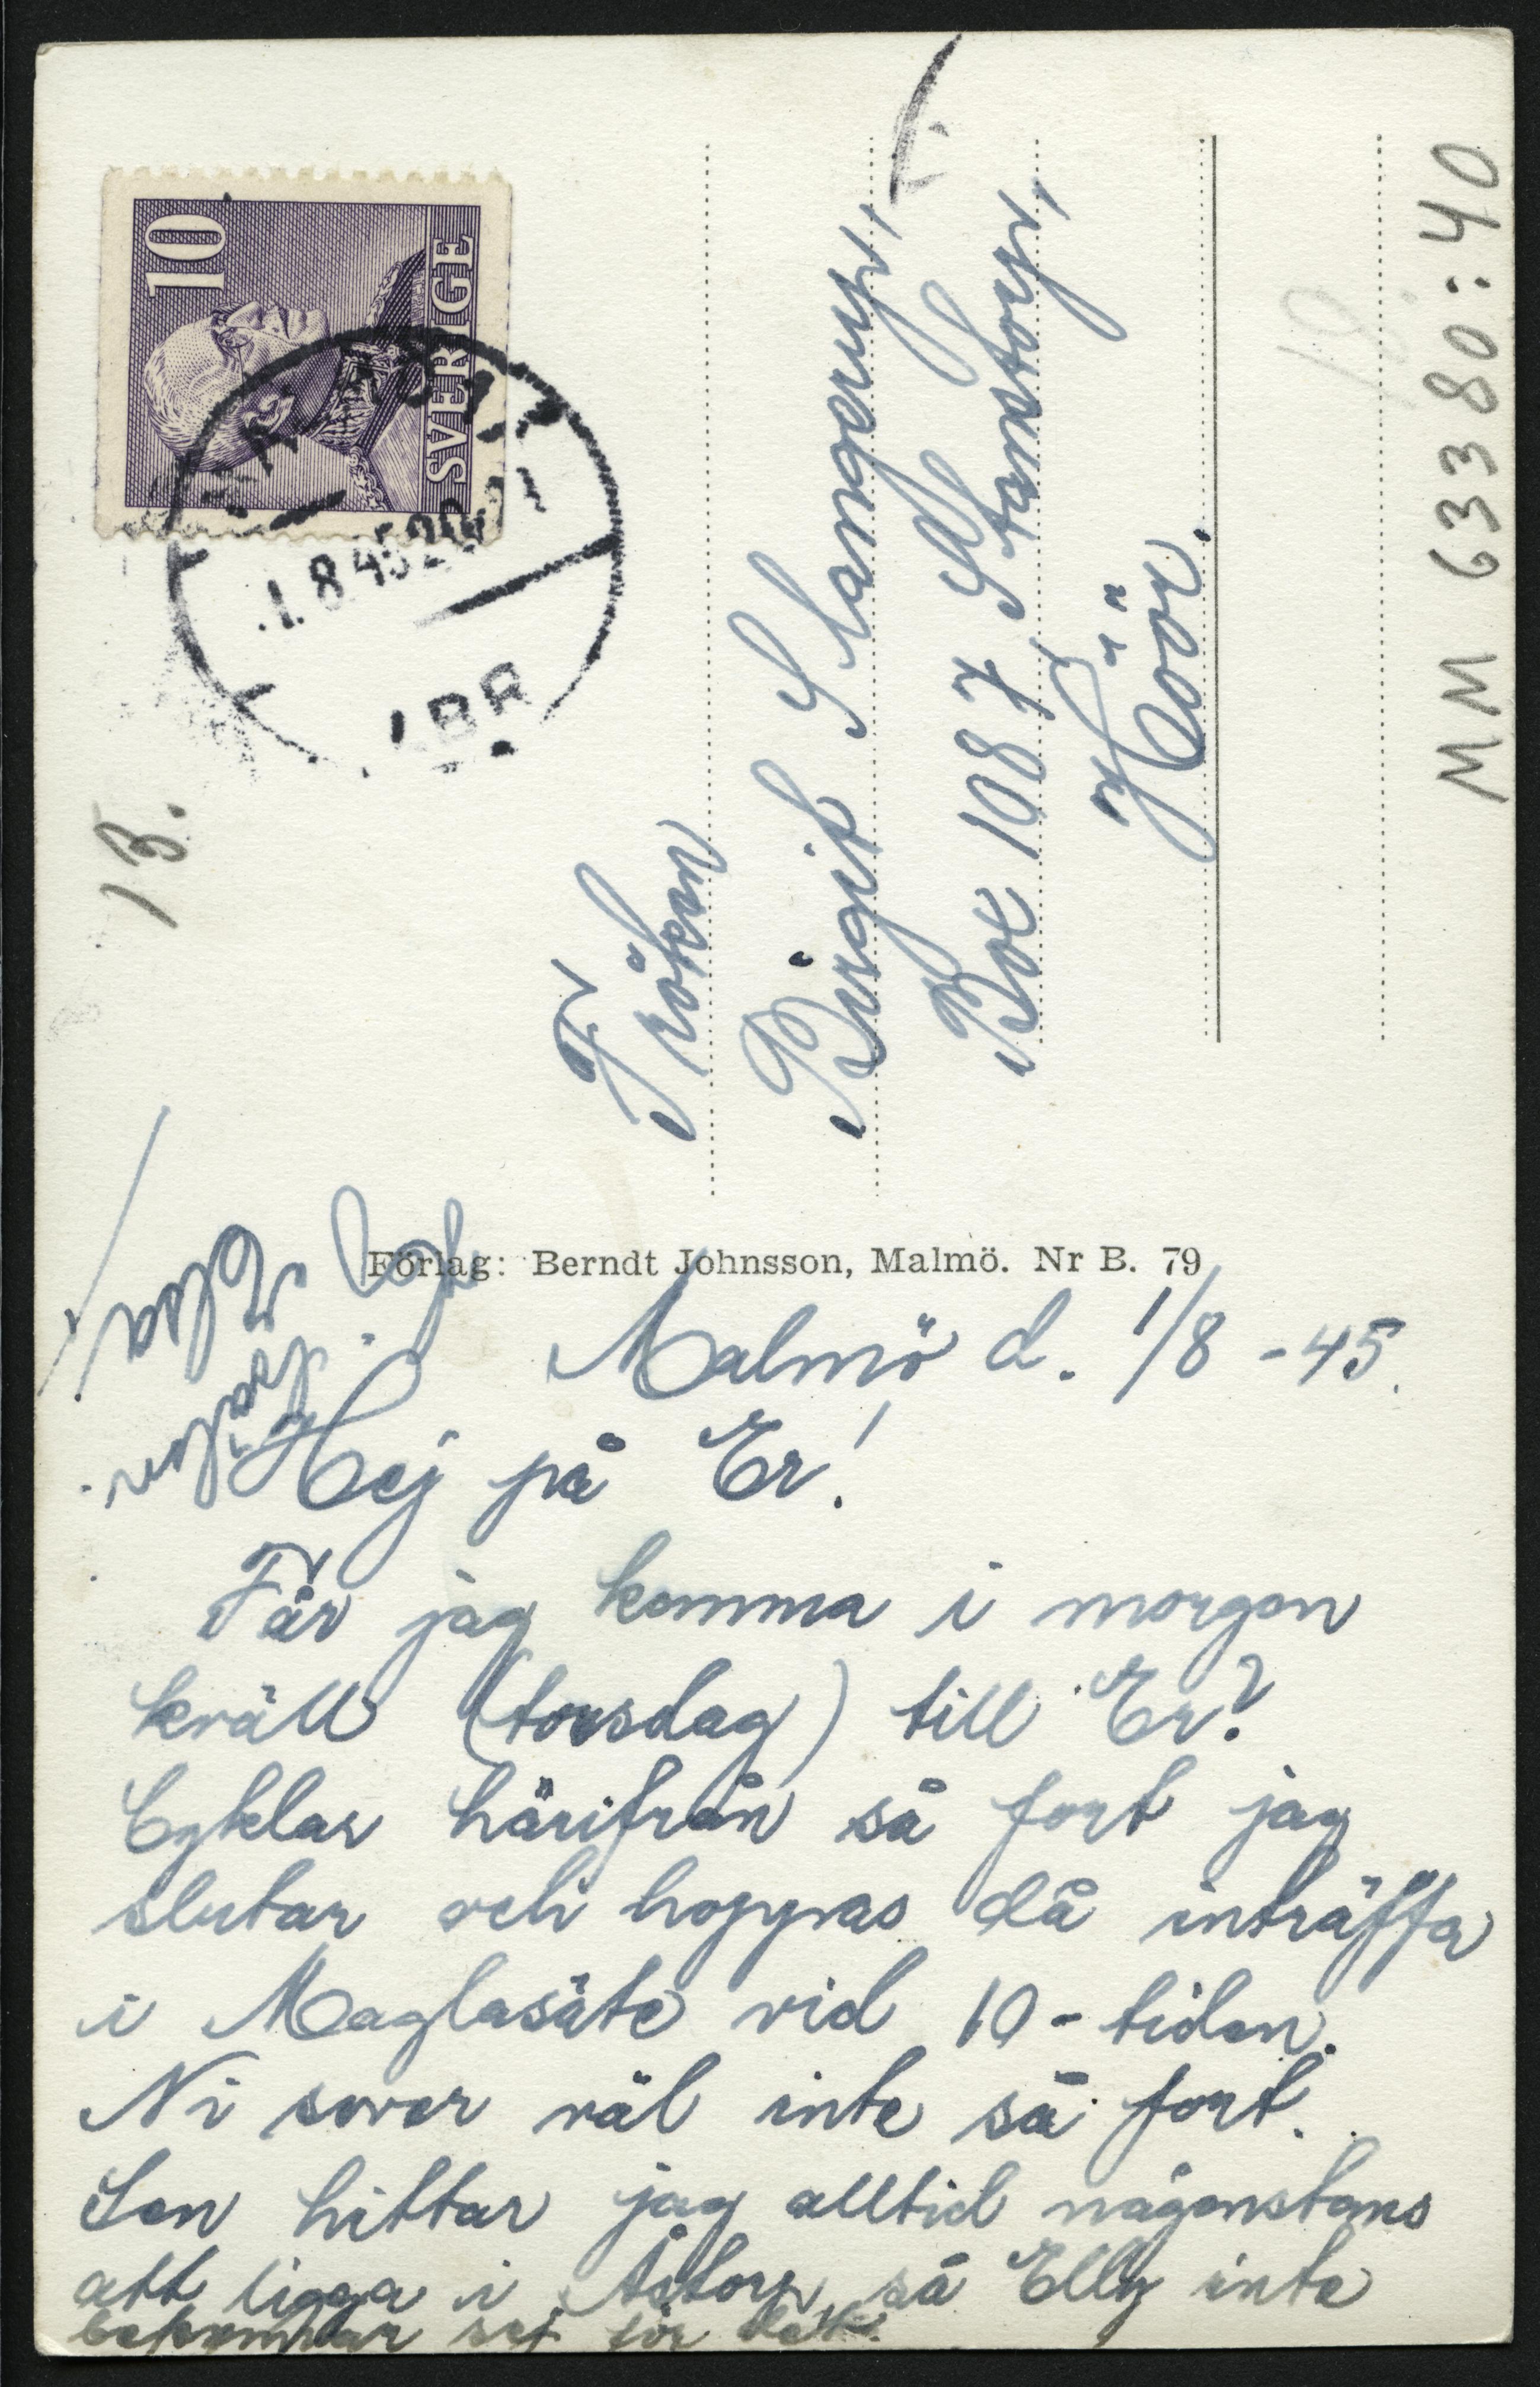 10
SVERIGE
.1.8.45
LBR
13.
Fröken
Birgit Slangerup,
Box 1087, Stanstorp,
Höör.
MM 63380:40
Förlag: Berndt Johnsson, Malmö. Nr B. 79
Malmö d. 1/8 -45.
Hej på Er!
Får jag komma i morgon
kväll (torsdag) till Er?
Cyklar härifrån så fort jag
slutar och hoppas då inträffa
i Maglasäte vid 10-tiden.
Ni sover väl inte så fort.
Sen hittar jag alltid någonstans
att ligga i Åstorp, så Elly inte
bekymrar sej för det.
Elsa